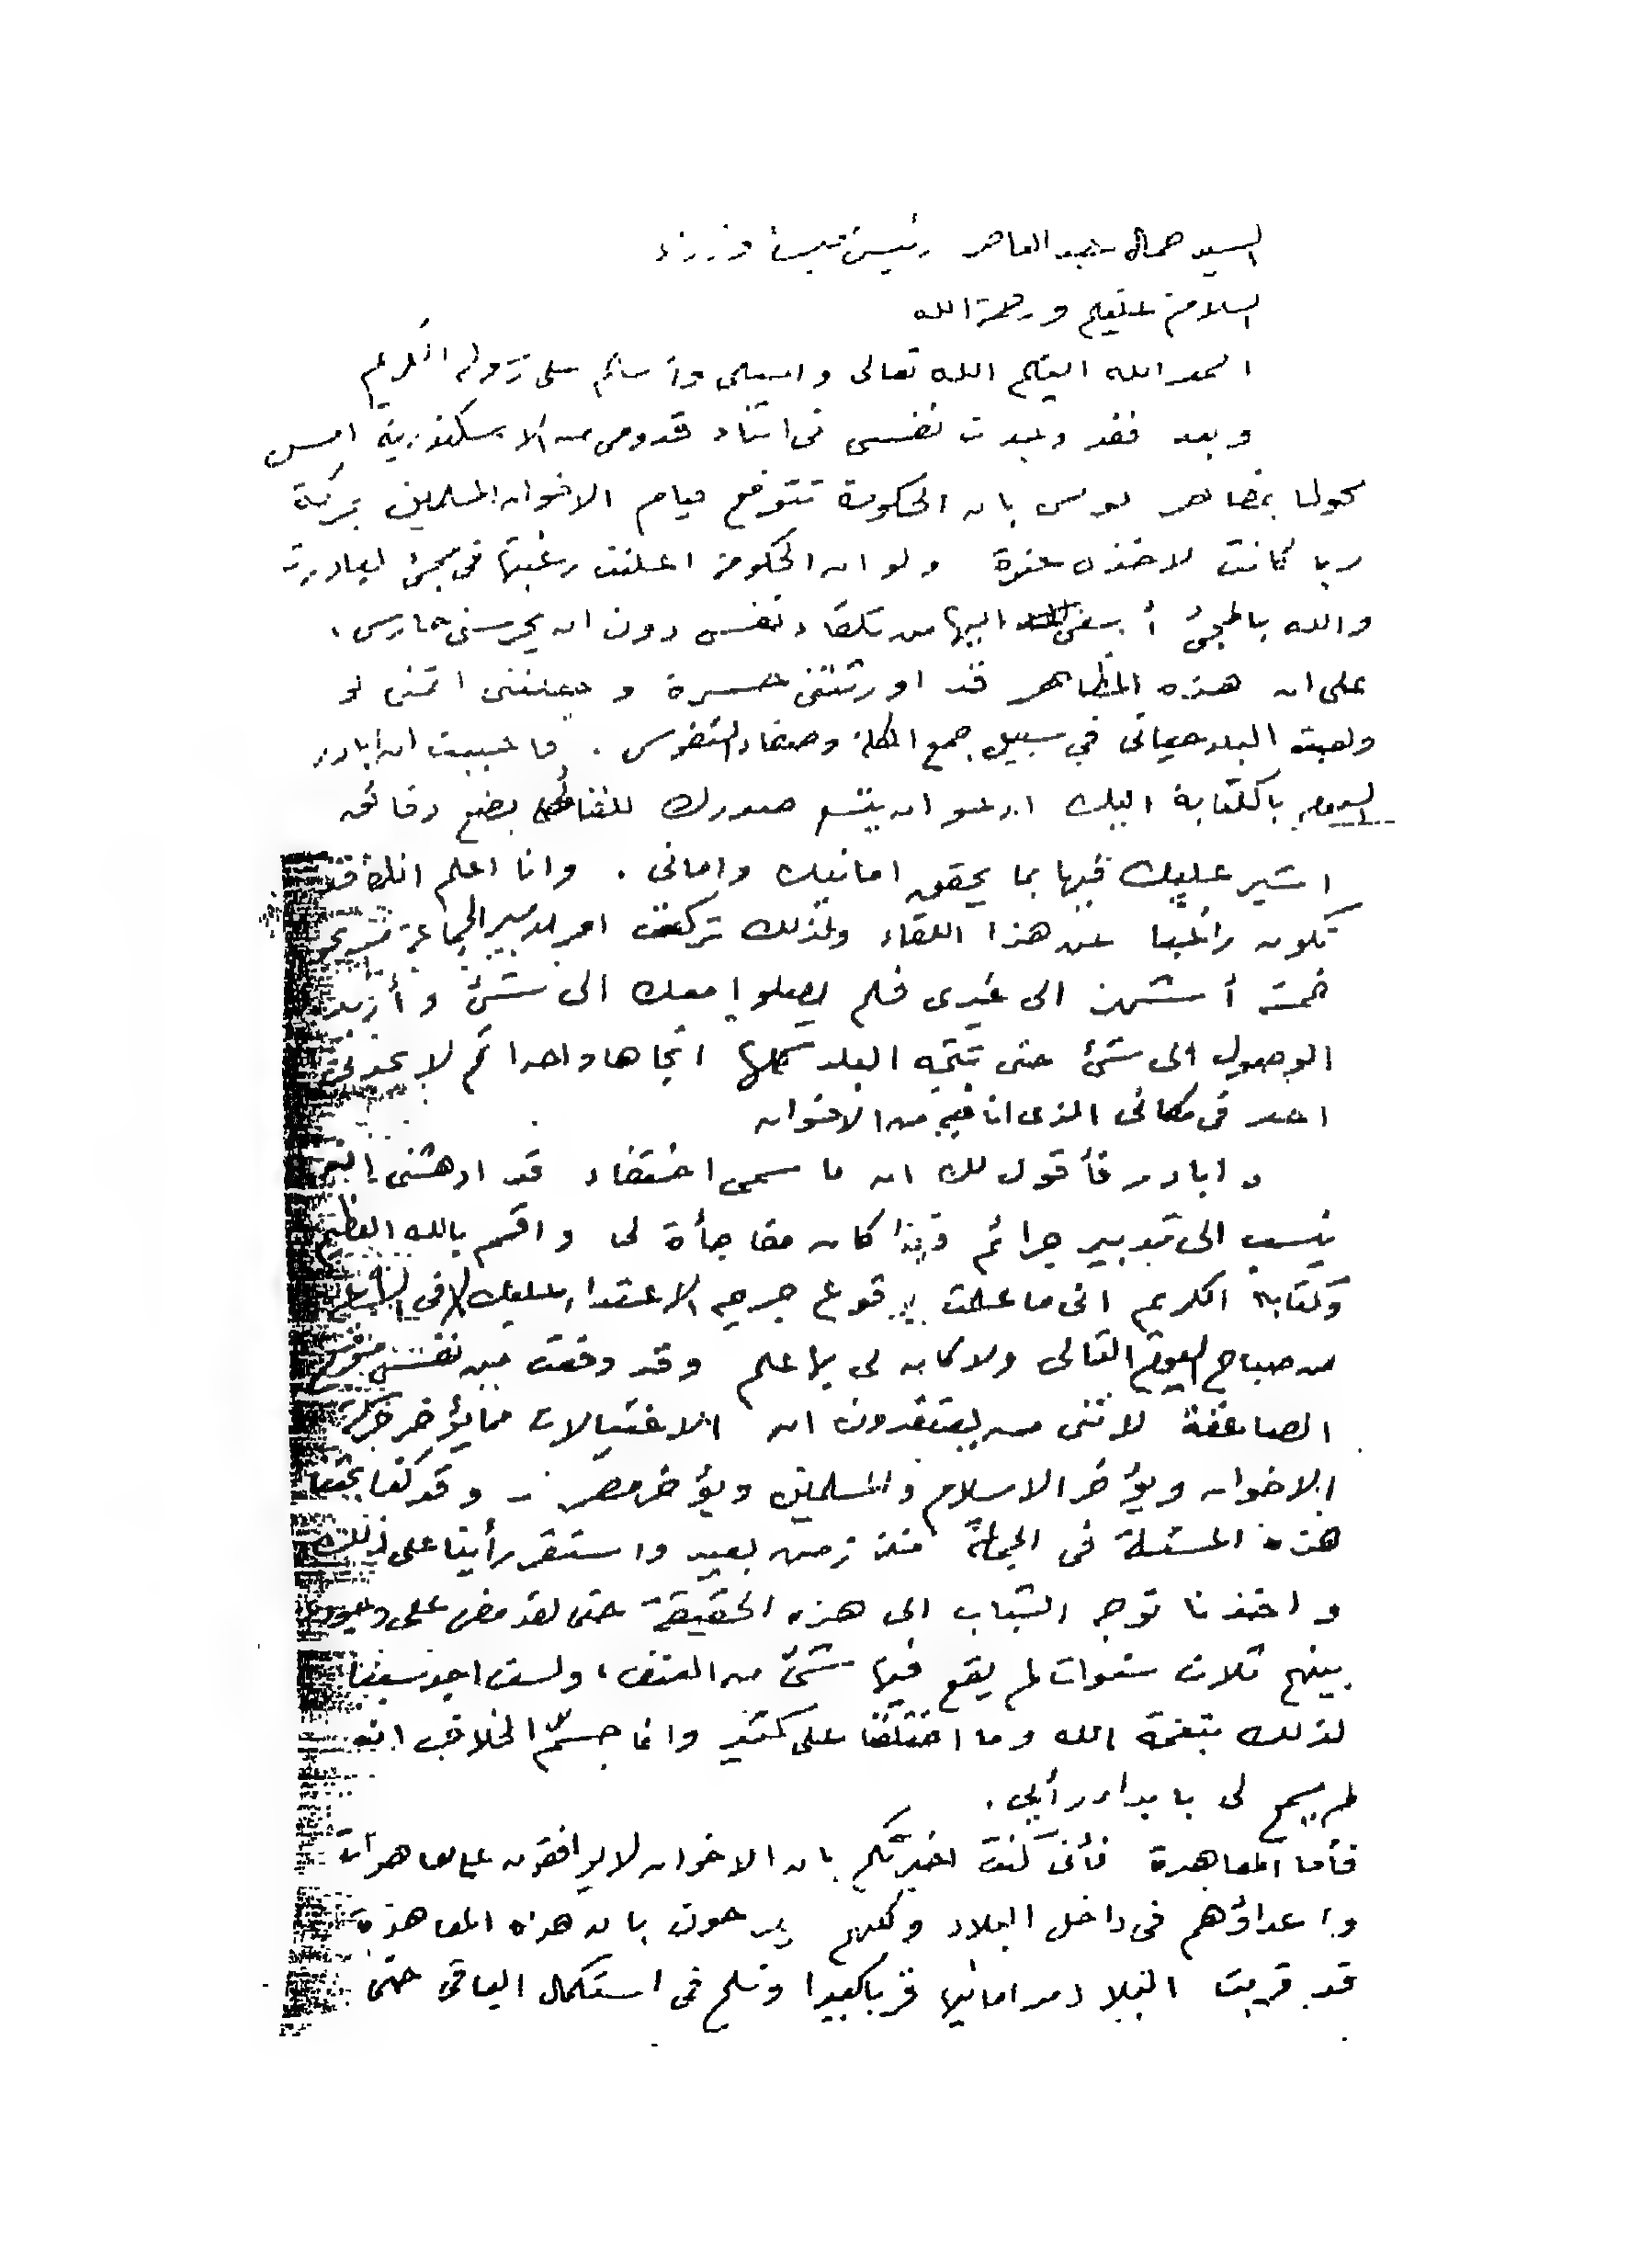 السيد جمال عبد الناصر رئيس مجلس الوزراء
السلام عليكم ورحمة الله
احمد الله اليكم الله تعالى واصلى وأسلم على رسوله الكريم
وبعد فقد وجدت نفسى فى اثناء قدومى من الاسكندرية امس
محوطا بمظاهر توحى بان الحكومة تتوقع قيام الاخوان المسلمين بحركة
ربما كانت لاخذى عنوة ولو ان الحكومة اعلنت رغبتها فى مجيئ لبادرت
والله بالمجئ أسعى اليها من تلقاء نفسى دون ان يحرسنى حارس،
على ان هذه المظاهر قد اورثتنى حسرة وجعلتنى اتمنى لو
وهبت البلد حياتى في سبيل جمع الكلمة وصفاء النفوس. فاحببت ان ابادر
اليوم بالكتابة اليك ارجو ان يتسع صدرك للقائى بضع دقائق
اشير عليك فيها بما يحقق امانيك وامانى. وانا اعلم انك قد
تكون راغبا عن هذا اللقاء ولذلك تركت امر تدبير الجماعة نحو
خمسة أشهر الى غيرى فلم يصلوا معك الى شئ وأريد
الوصول الى شئ حتى تتجه البلد كلها اتجاها واحدا ثم لا يجدنى
احد فى مكانى الذى انا فيه من الاخوان
وابادر فأقول لك ان ما سمى اختفاء قد ادهشنى
ينسب الى تدبير جرائم وهذا كان مفاجأة لى واقسم بالله العظيم
وكتابه الكريم انى ما علمت بوقوع جريمة الاعتداء عليك الا فى
من صباح اليوم التالى ولا كان لى بها علم وقد وقعت من نفسى موقع
الصاعقة لاننى ممن يعتقدون ان الاغتيالات مما يؤخر حركة
الاخوان ويؤخر الاسلام والمسلمين ويؤخر مصر - وقد كنا بحثنا
هذه المسئلة فى الجماعة منذ زمن بعيد واستقر رأينا على ذلك
واخذنا توجه الشباب الى هذه الحقيقة حتى لقد مضى على وجودى
بينهم ثلاث سنوات لم يقع فيها شئ من العنف، ولست اجد سببا
لذلك بنعمة الله وما اختلفنا على كثير وانما جسّم الخلاف انه
لم يسمح لى بابداء رأيي.
فأما المعاهدة فأنى كنت اخبرتكم بان الاخوان لا يوافقون على معاهدات
واعداؤهم فى داخل البلاد وكلهم يرحون بان هذه المعاهدة
قد قربت البلاد من امانيها قربا كبيرا ونلح فى استكمال الباقى حتى